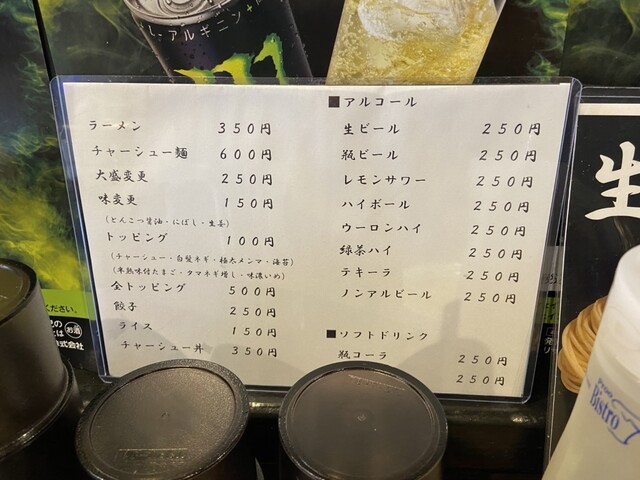 アルギニン
ラーメン 350円
チャーシュー麺 600円
大盛変更 250円
味変更 150円
(とんこつ醤油・にぼし・生姜)
トッピング 100円
(チャーシュー・白髪ネギ・極太メンマ・海苔)
(半熟味付たまご・タマネギ増し・味濃いめ)
全トッピング 500円
餃子 250円
ライス 150円
チャーシュー丼 350円
■アルコール
生ビール 250円
瓶ビール 250円
レモンサワー 250円
ハイボール 250円
ウーロンハイ 250円
緑茶ハイ 250円
テキーラ 250円
ノンアルビール 250円
■ソフトドリンク
瓶コーラ 250円
250円
生
ください。
お酒
株式会社
Bistro